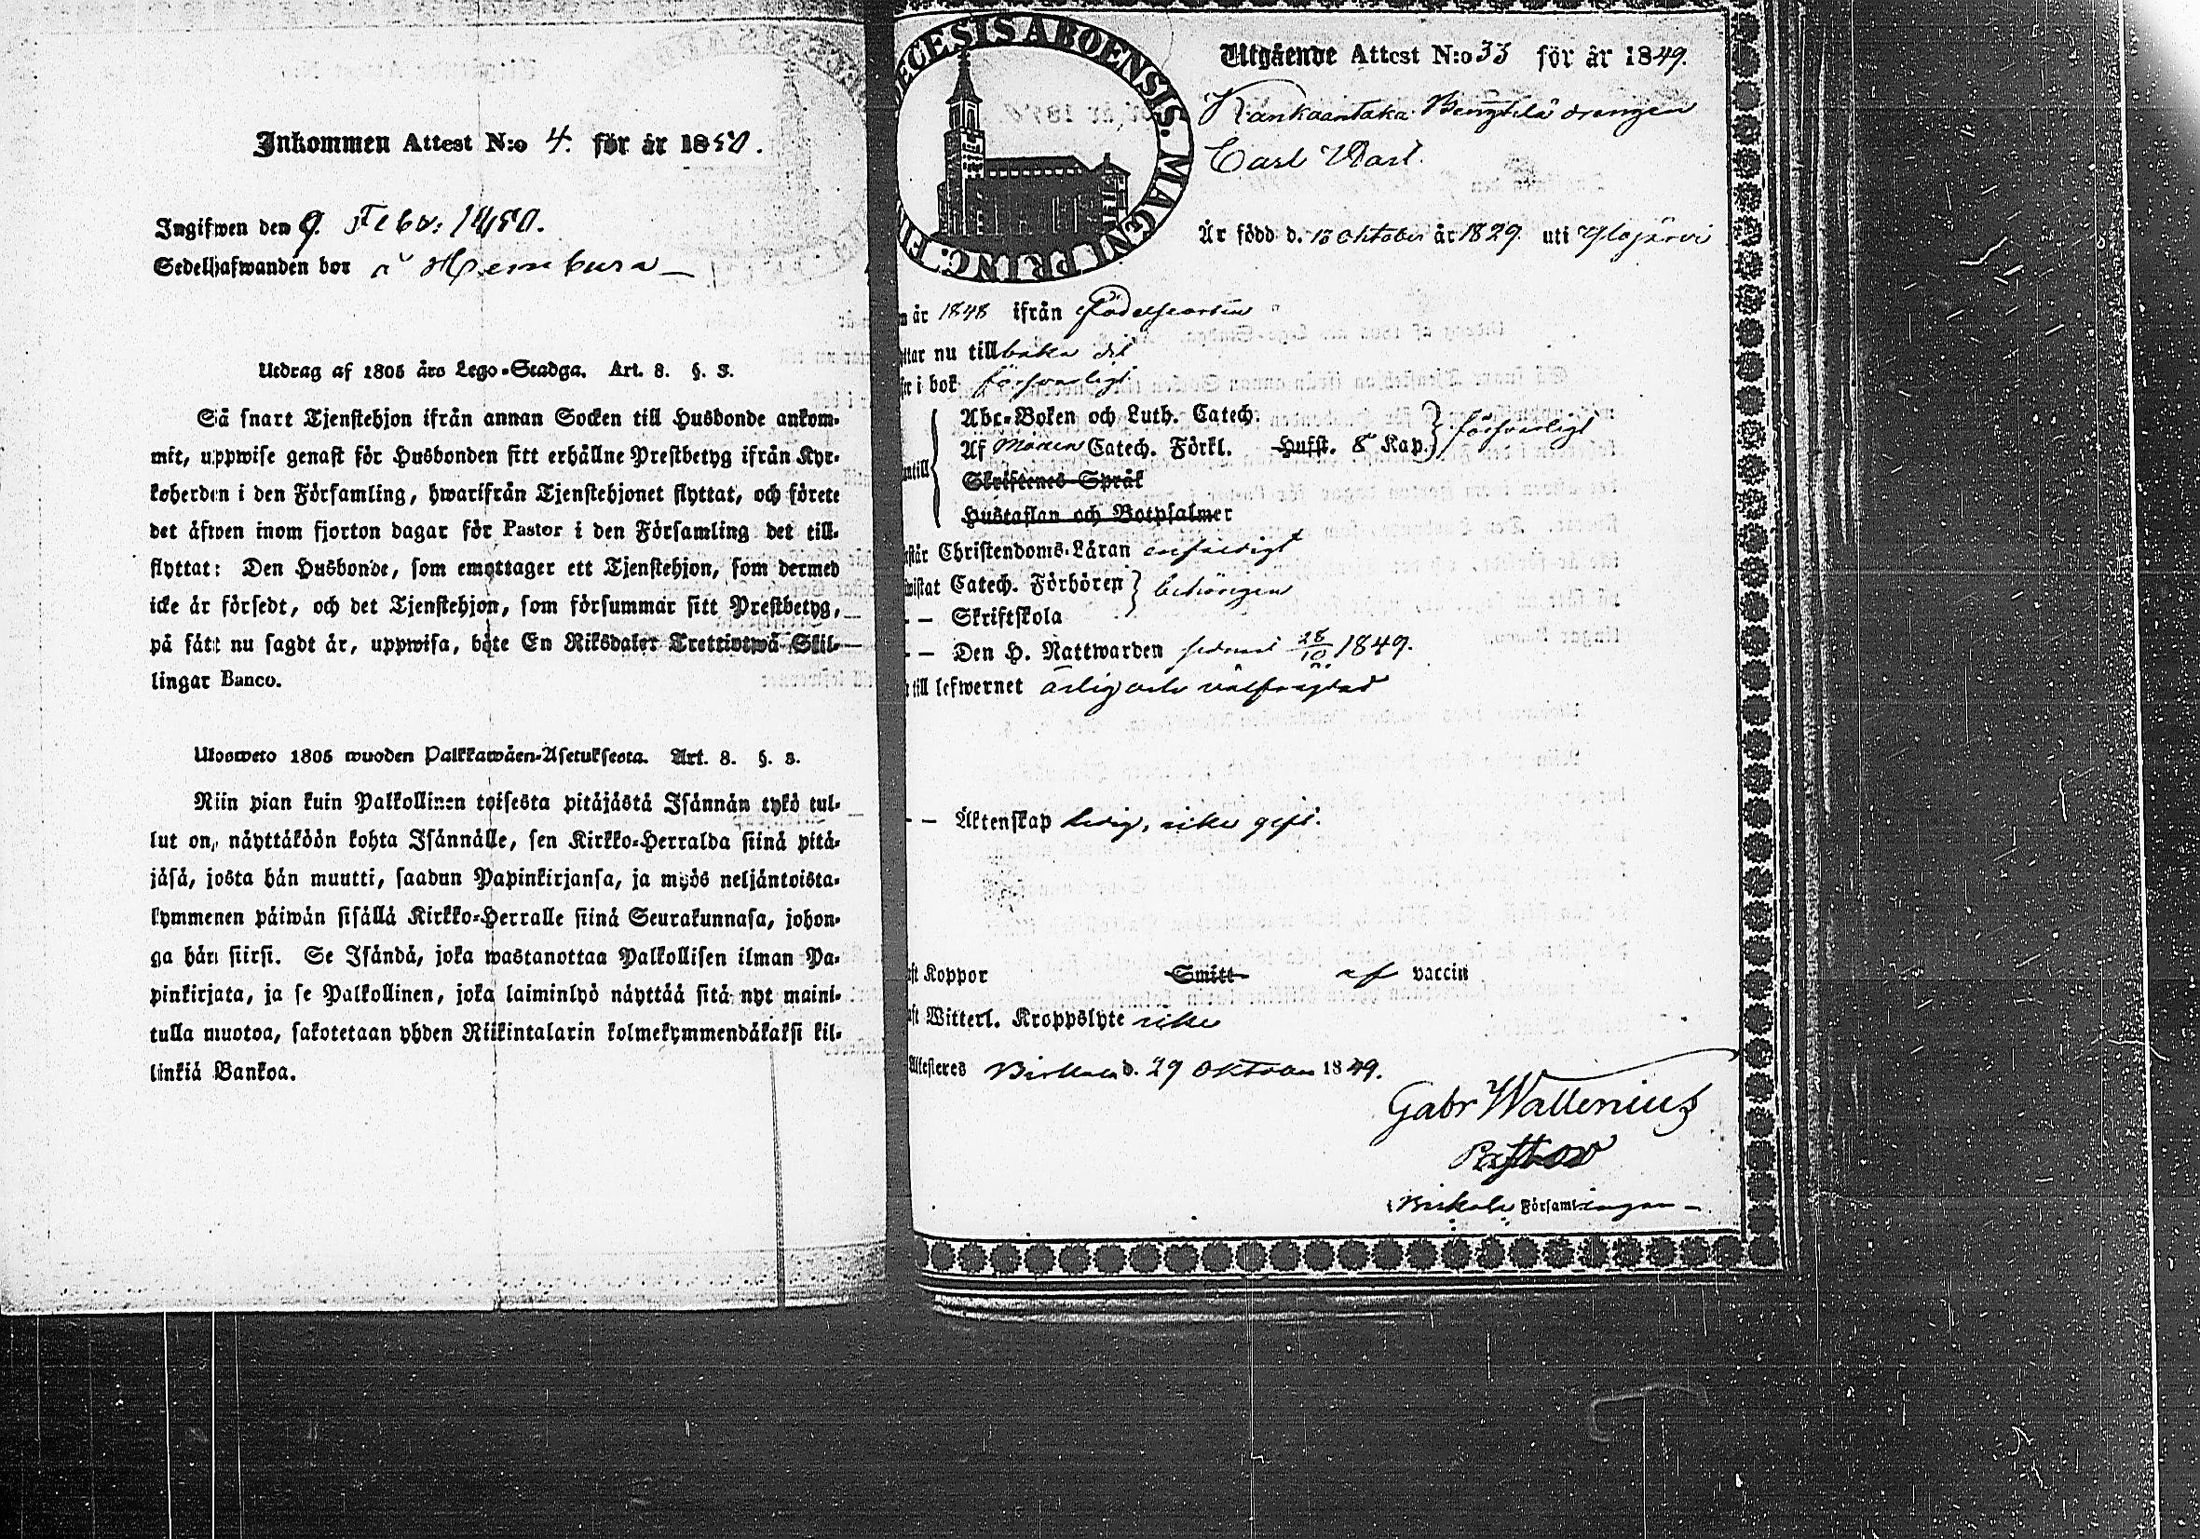 Inkommen Attest N:o 4. för år 1850.
Ingifwen den 9. Febr. 1850.
Sedelhafwanden bor
Utdrag af 1805 års Lego-Stadga. Art. 8. §. 3.
Så snart Tjenstehjon ifrån annan Socken till Husbonde ankom-
mit, uppwise genast för Husbonden sitt erhållne Prestbetyg ifrån Kyr-
koherden i den Församling, hwarifrån Tjenstehjonet flyttat, och förete
det äfwen inom fjorton dagar för Pastor i den Församling det till-
flyttat: Den Husbonde, som emottager ett Tjenstehjon, som dermed
icke är försedt, och det Tjenstehjon, som försummar sitt Prestbetyg,
på sätt nu sagdt är, uppwisa, böte En Riksdaler Trettiotwå Skil-
lingar Banco.
Ulosweto 1805 wuoden Palkkawäen-Asetuksesta. Art. 8. §. 3.
Niin pian kuin Palkollinen toisesta pitäjästä Isännän tykö tul-
lut on, näyttäköön kohta Isännälle, sen Kirkko-Herralda siinä pitä-
jäsä, josta hän muutti, saadun Papinkirjansa, ja myös neljäntoista-
kymmenen päiwän sisällä Kirkko-Herralle siinä Seurakunnasa, johon-
ga hän siirsi. Se Isändä, joka wastanottaa Palkollisen ilman Pa-
pinkirjata, ja se Palkollinen, joka laiminlyö näyttää sitä nyt maini-
tulla muotoa, sakotetaan yhden Riikintalarin kolmekymmendäkaksi kil-
linkiä Bankoa.
ECESIS ABOENSIS. MAGNI PRINC. FI
Utgående Attest N:o 33 för år 1849.
Kankaantaka Bengtilä drängen
Carl
Är född d. 18 Oktober år 1829 uti Ylöjärvi
år 1848 ifrån Födelseorten
nu tillbaka dit
i bok försvarligt
Abc-Boken och Luth. Catech.
Af Catech. Förkl. Husst. 8 Kap. försvarligt
Skriftenes Språk
Hustaflan och Botpsalmer
Christendoms-Läran enfaldigt
Catech. Förhören behörigen
- - Skriftskola
- - Den H. Nattwarden sednast 28/10 1849.
till lefwernet ärlig och välfrejdad
- - Äktenskap ledig, icke gift.
Koppor Smitt af vaccin
Witterl. Kroppslyte icke
Attesteres Birkala d. 29 Oktober 1849.
Gabr Wallenius
Pastor
i Birkala Församlingen